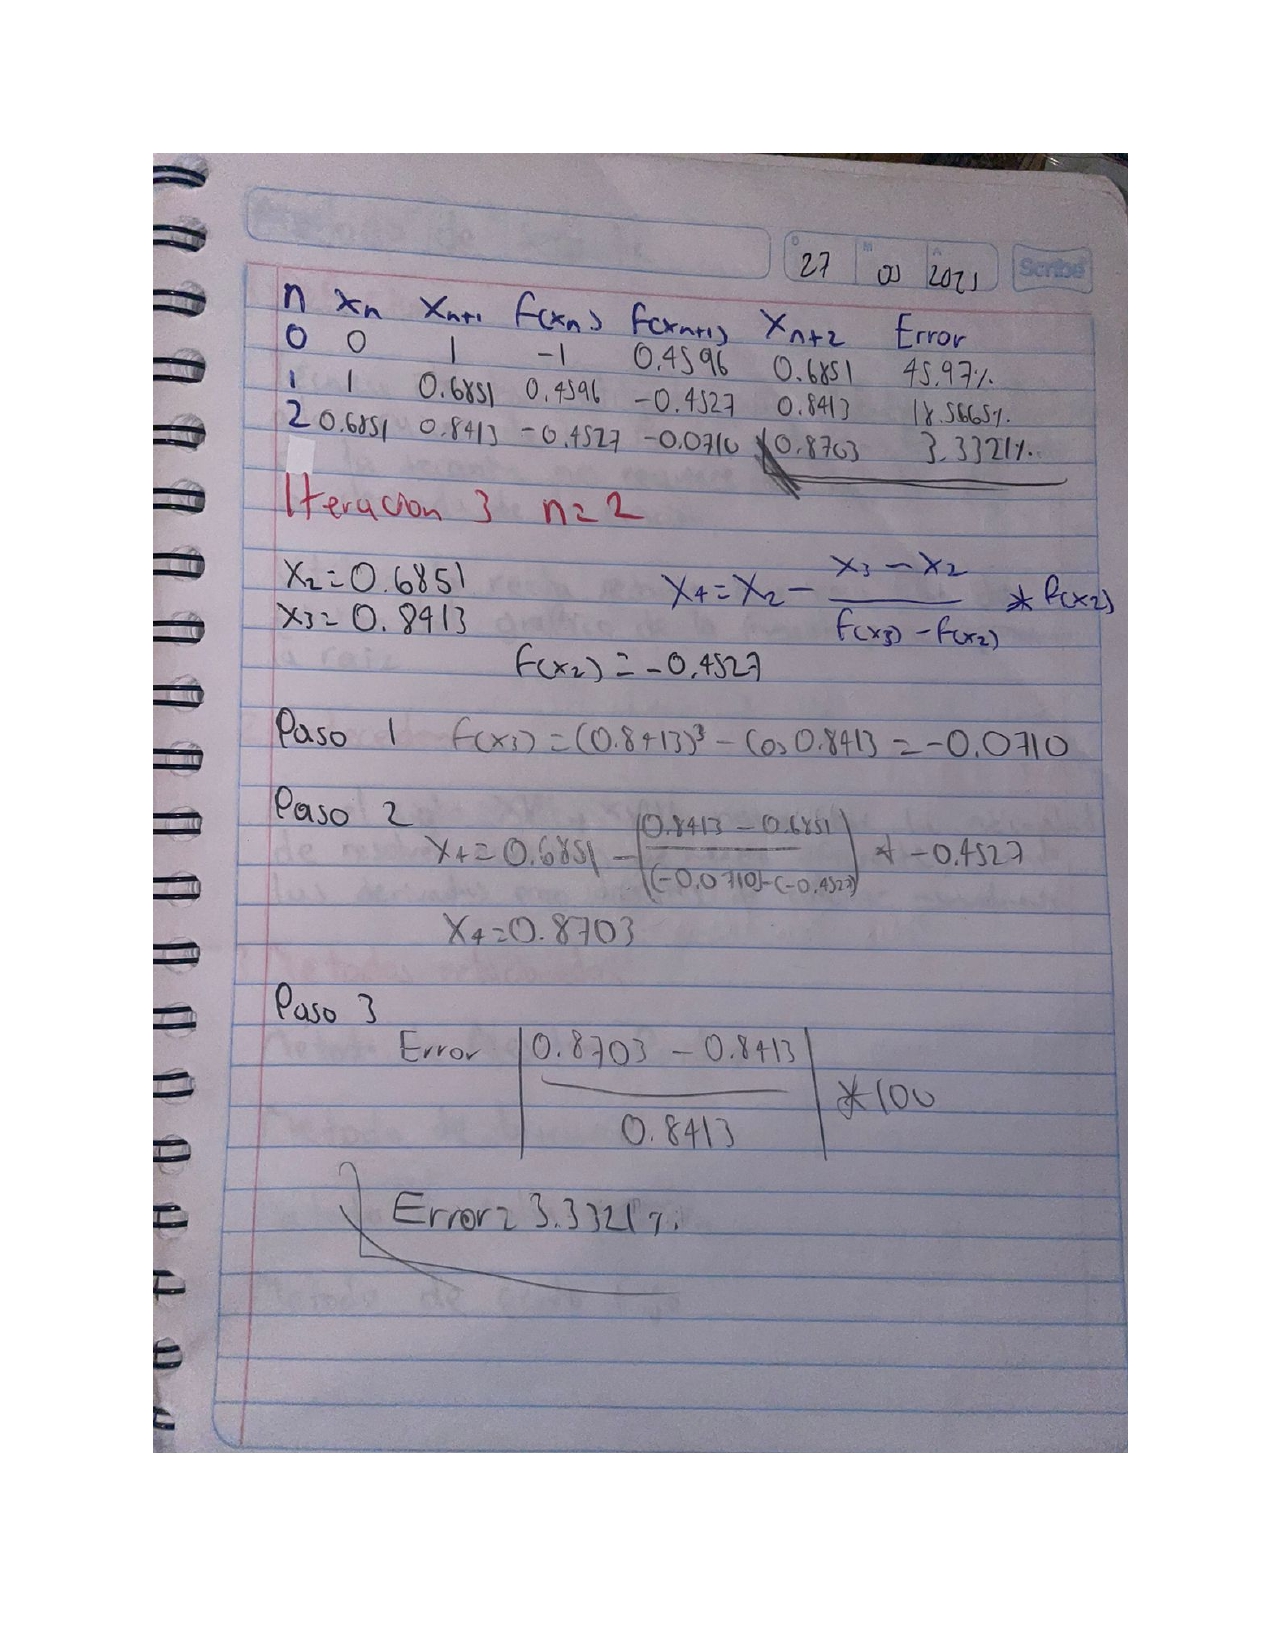 D 27 M 00 A 2021 Scribe
n xn xn+1 f(xn) f(xn+1) xn+2 Error
0 0 1 -1 0.4596 0.6851 45.97%
1 1 0.6851 0.4596 -0.4527 0.8413 18.5665%
2 0.6851 0.8413 -0.4527 -0.0710 0.8703 3.3321%
Iteracion 3 n=2
x2=0.6851
x3=0.8413
x4=x2- (x3-x2)/(f(x3)-f(x2)) * f(x2)
f(x2)=-0.4527
Paso 1 f(x3)=(0.8413)³-Cos 0.8413=-0.0710
Paso 2
x4=0.6851-((0.8413-0.6851)/((-0.0710)-(-0.4527))) * -0.4527
x4=0.8703
Paso 3
Error |(0.8703-0.8413)/0.8413| *100
Error=3.3321%